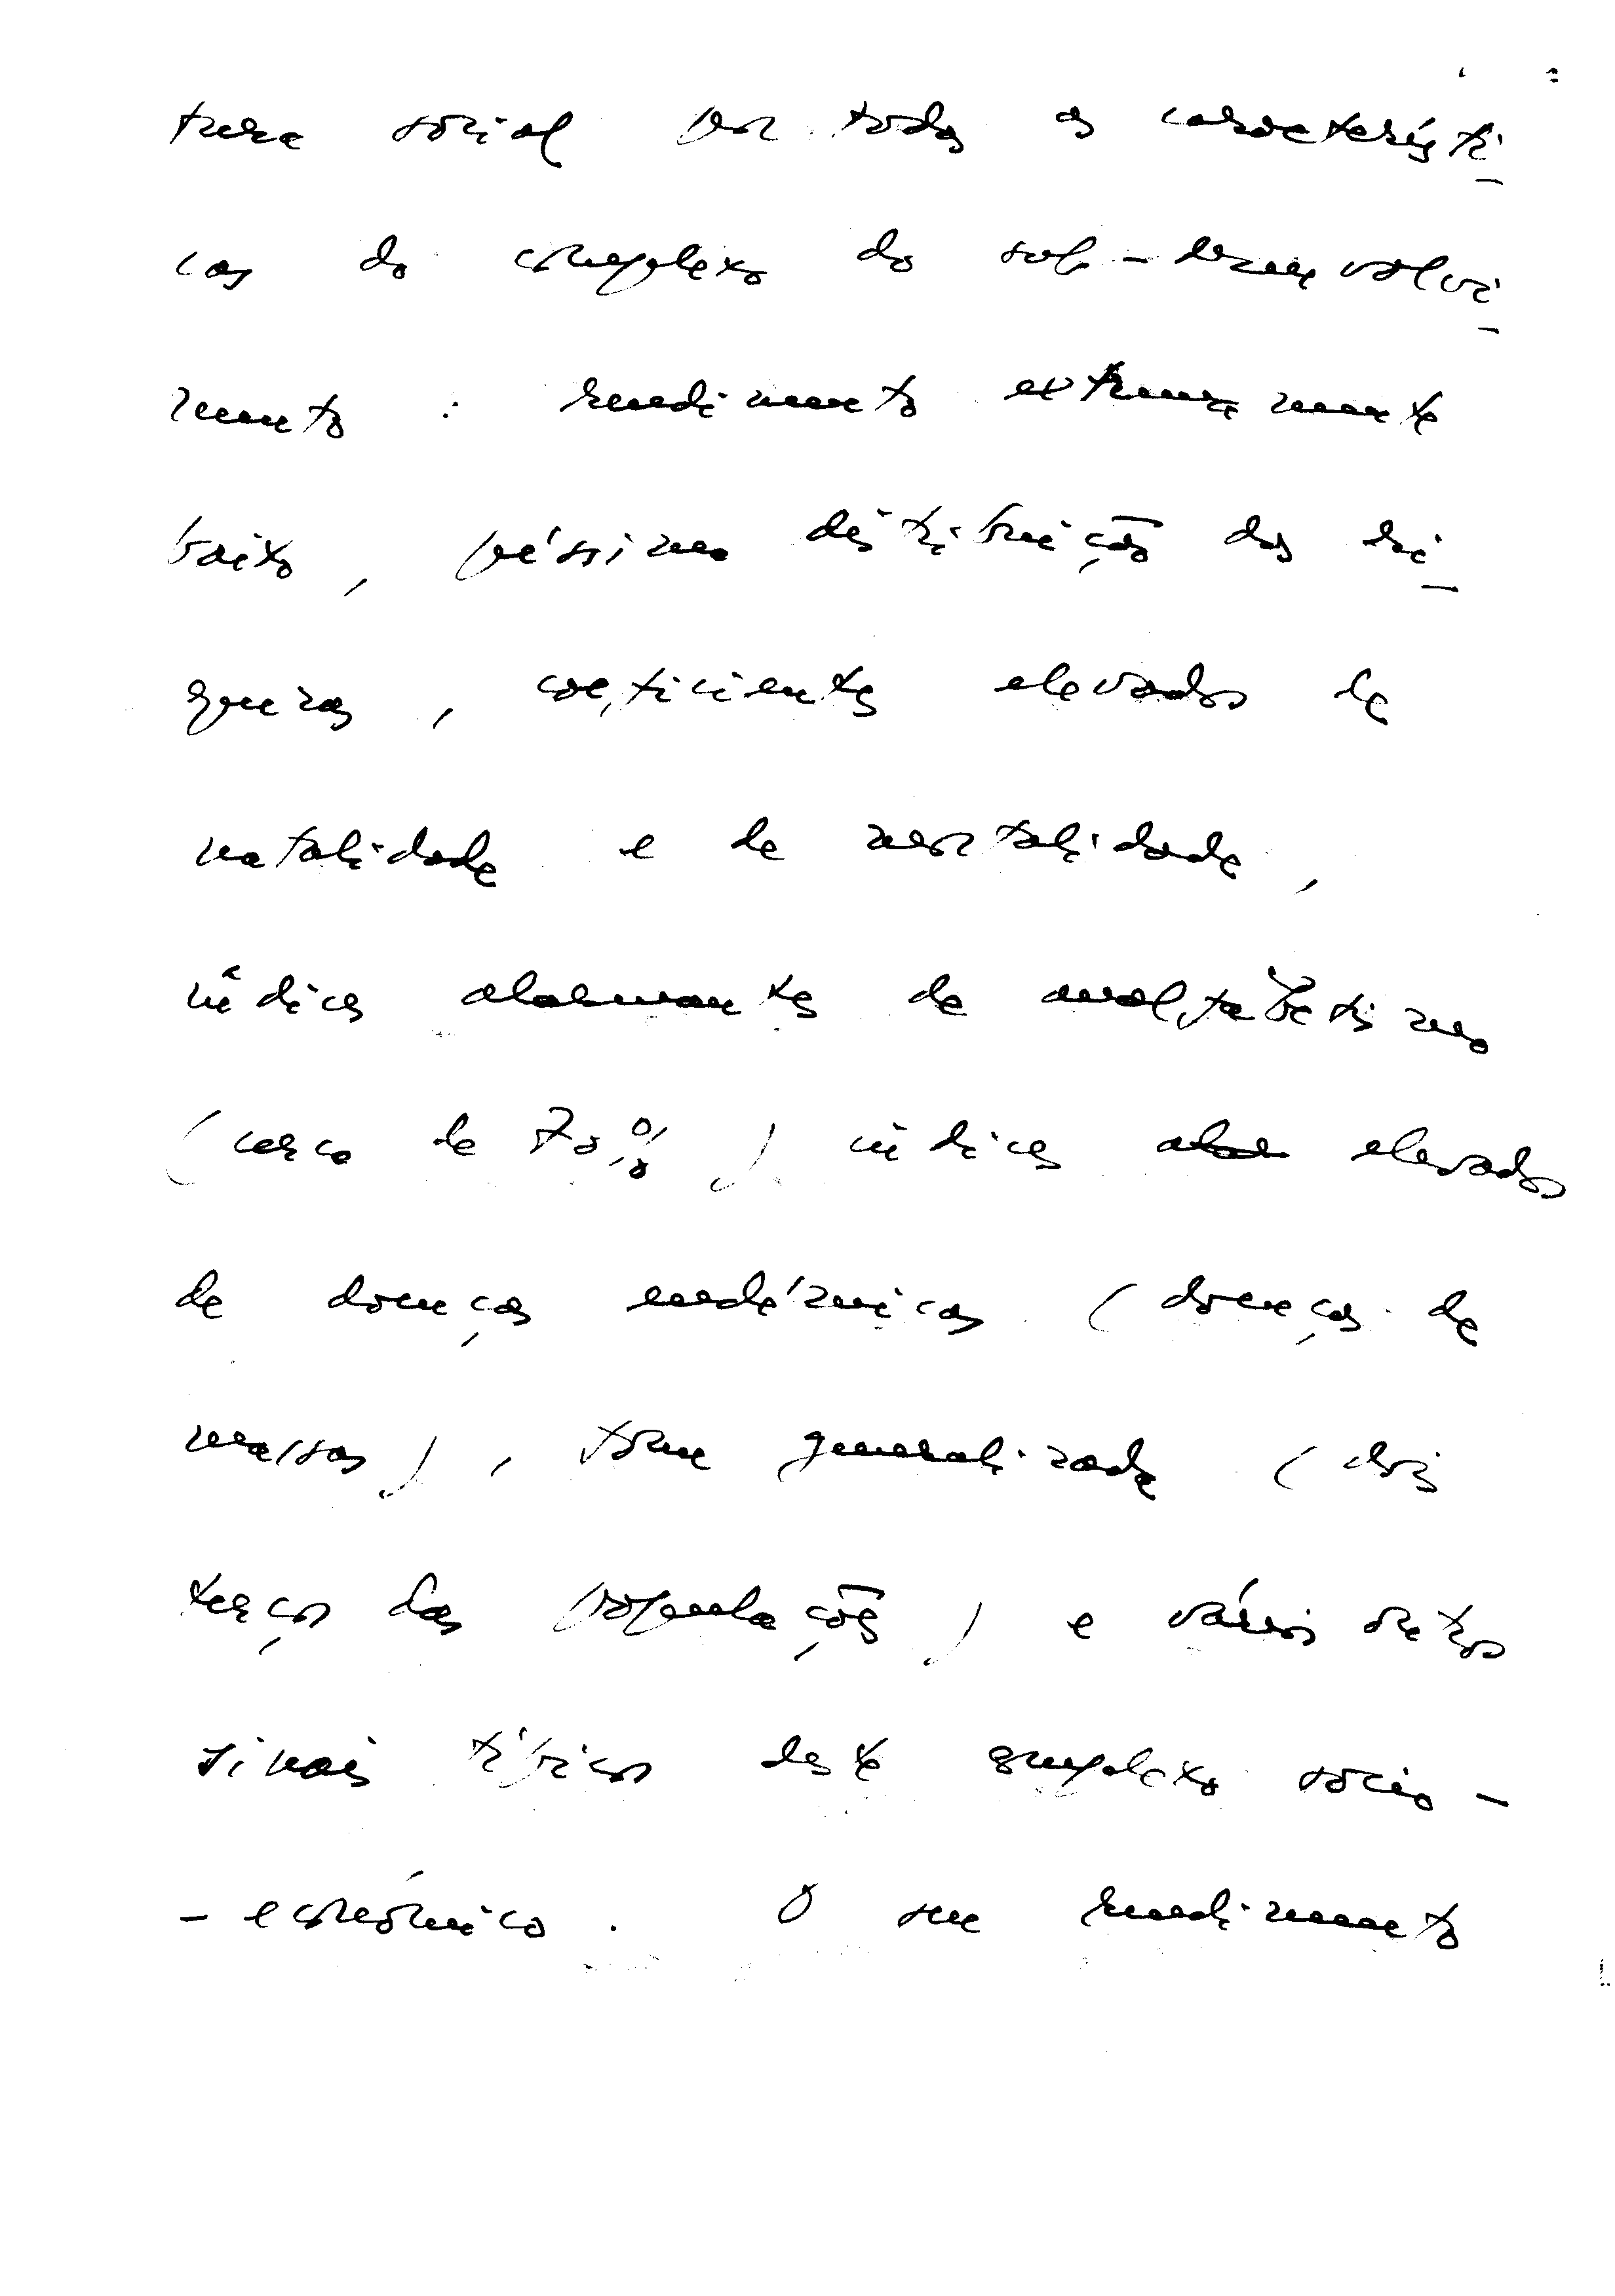 tura social por todas as característi-
cas do complexo do sub-desenvolvi-
mento: rendimento extremamente
baixo, péssima distribuição das ri-
quezas, coeficientes elevados de
natalidade e de mortalidade,
índices alarmantes de analfabetismo
(cerca de 70%) índices elevados
de doenças endémicas (doenças de
massas), fome generalizada (dois
terços das populações) e vários outros
sinais típicos deste complexo sócio-
-económico. O seu rendimento